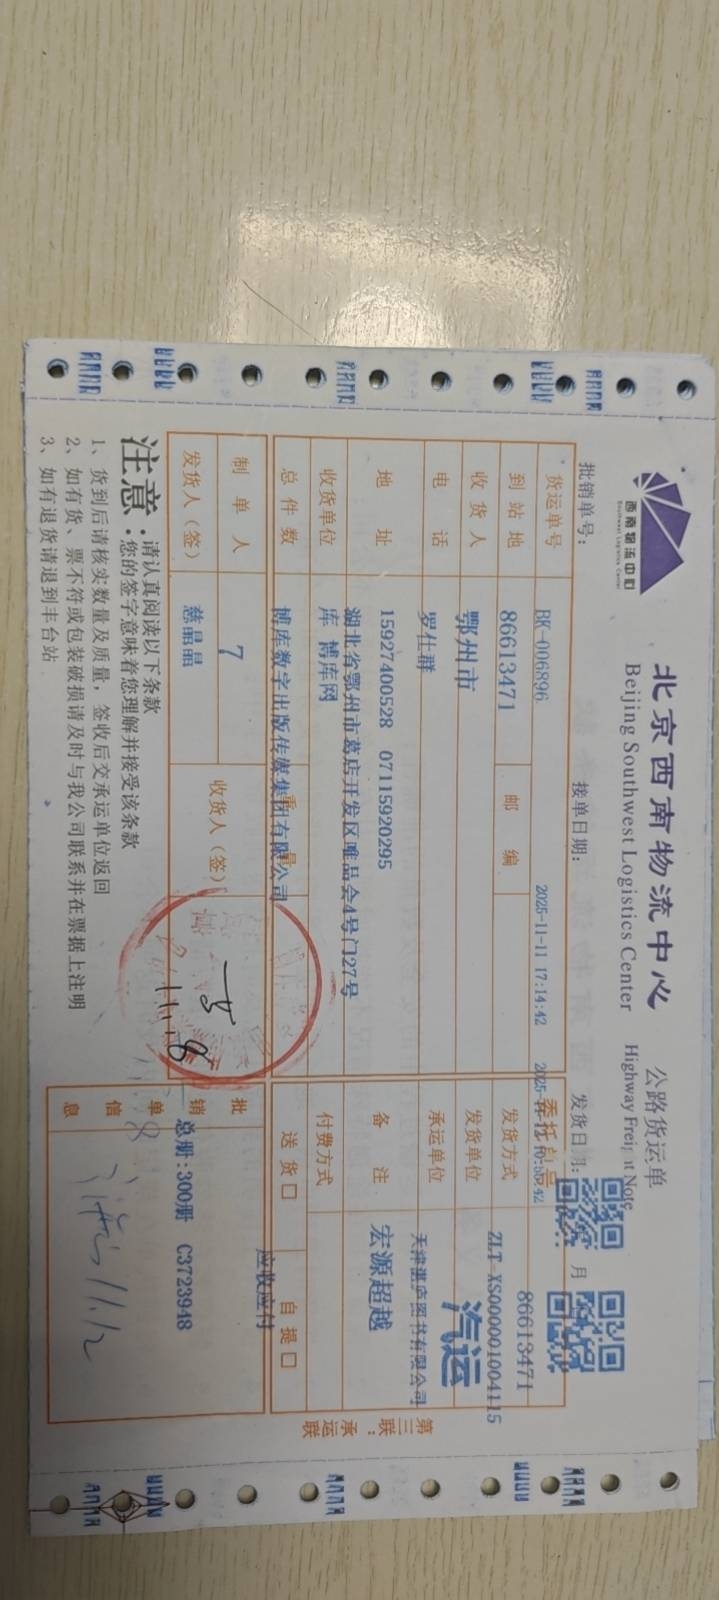 西南物流中心
Southwest Logistics Center
北京西南物流中心
公路货运单
Beijing Southwest Logistics Center
Highway Freight Note
批销单号:
接单日期:
发货日期:
月
BK-006896
2025-11-11 17:14:42
货运单号
86613471
委托自品
86613471
到站地
鄂州市
邮编
发货方式
ZLT-XS000001004115
汽运
收货人
罗仕群
发货单位
天津湛庐图书有限公司
电话
15927400528 07115920295
承运单位
宏源超越
地址
湖北省鄂州市葛店开发区唯品会4号门27号
库 博库网
备注
收货单位
博库数字出版传媒集团有限公司
付费方式
应收应付
总件数
7
重量
送货□
自提□
制单人
慈晶晶
发货人(签)
收货人(签)
批销单信息
总册:300册 C3723948
第三联:承运联
注意:
请认真阅读以下条款
您的签字意味着您理解并接受该条款
1、货到后请核实数量及质量,签收后交承运单位返回
2、如有货、票不符或包装破损请及时与我公司联系并在票据上注明
3、如有退货请退到丰台站